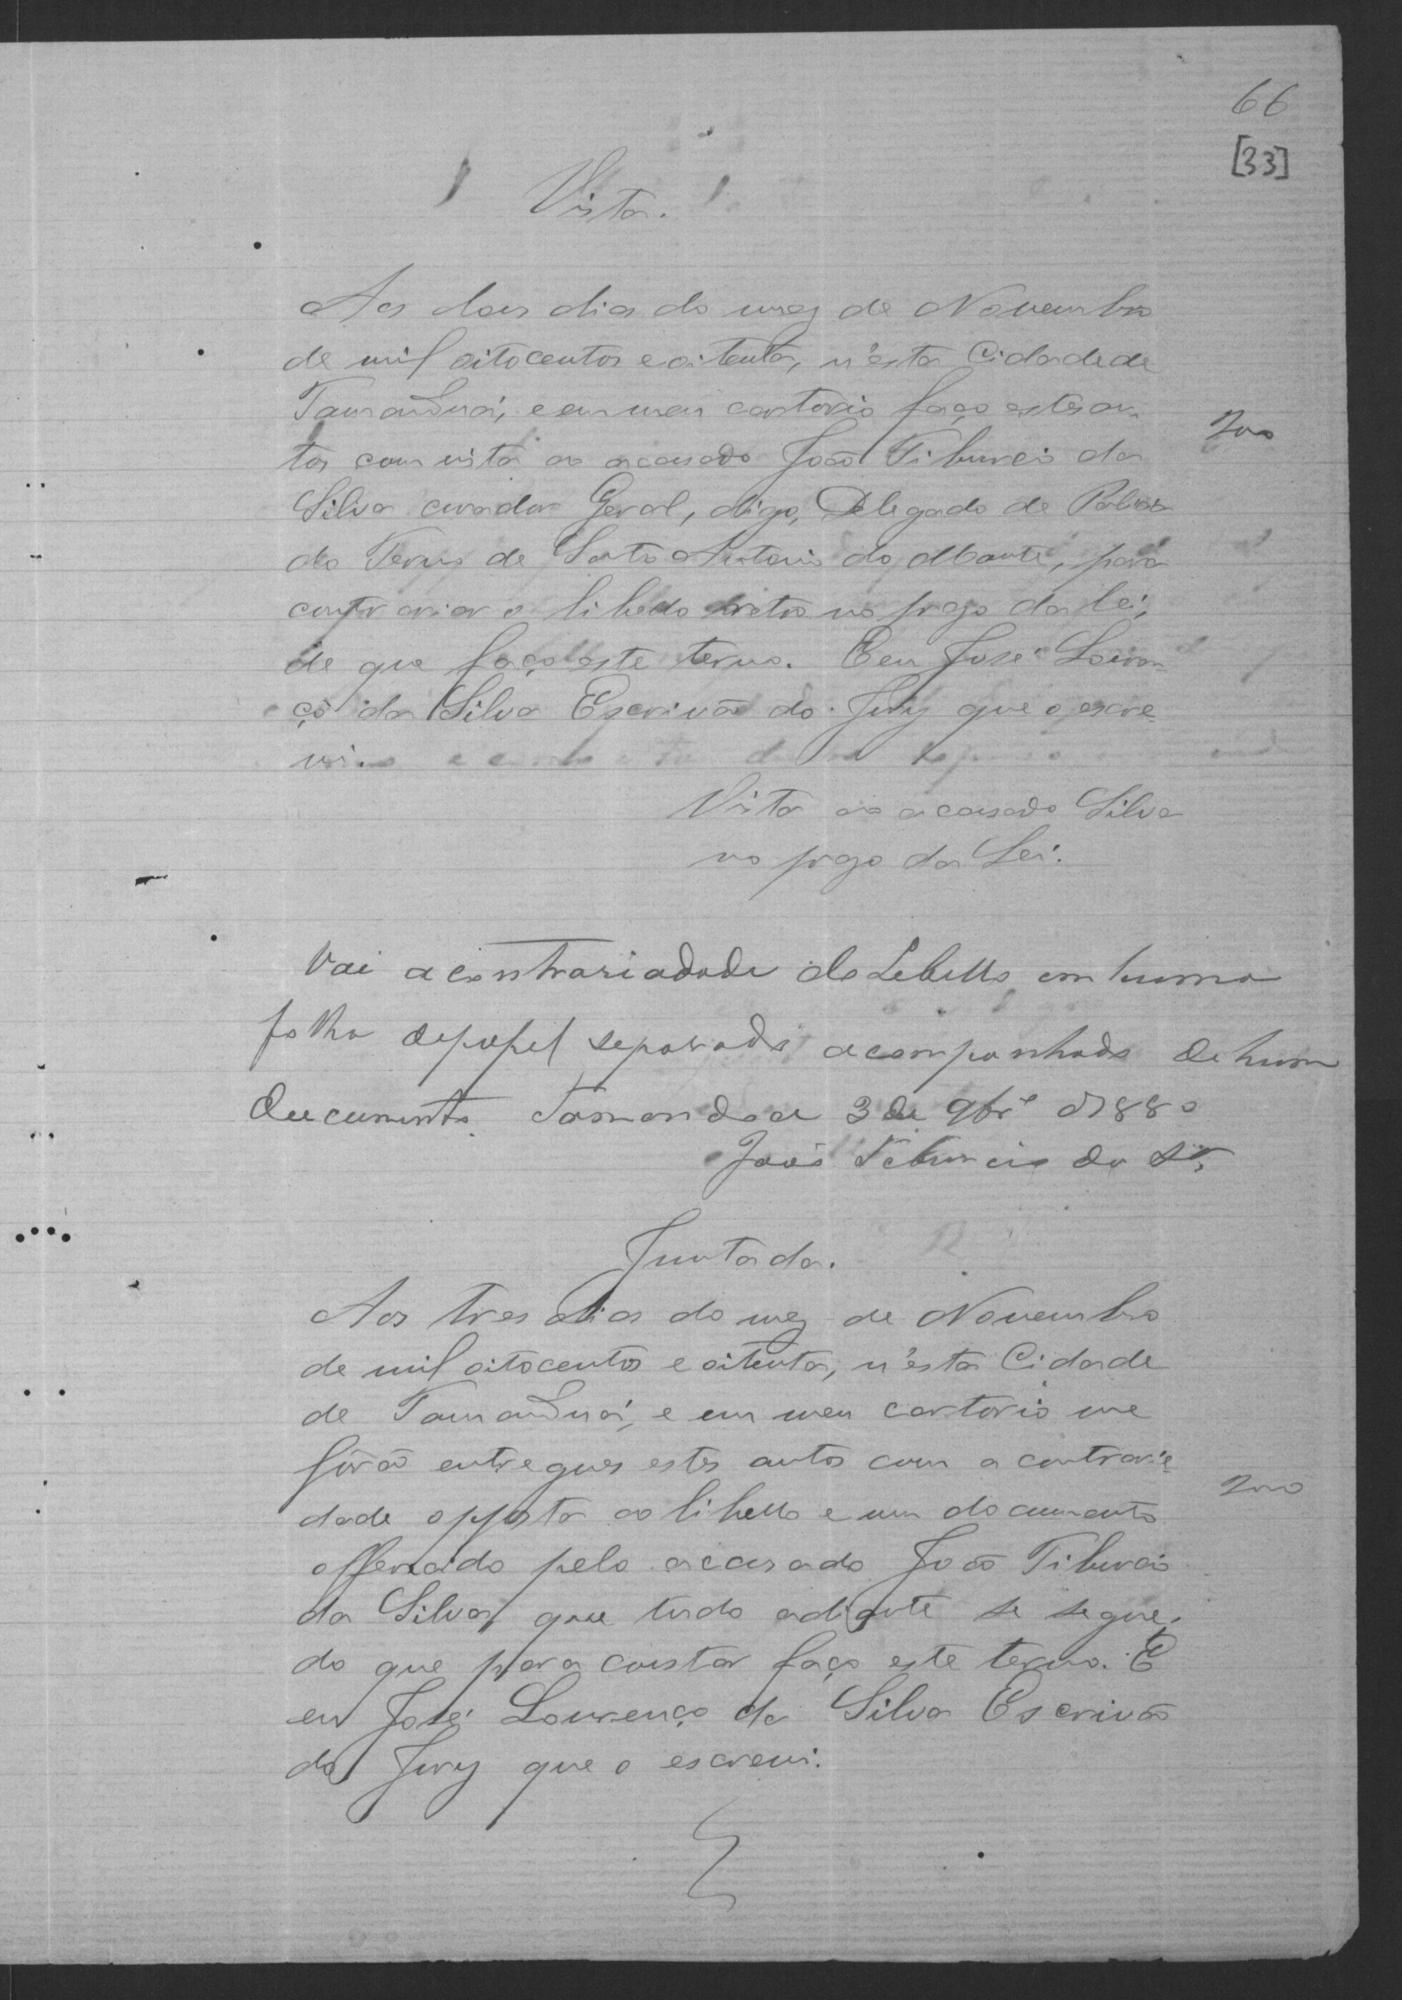 66
[33]
Vista.
Aos dous dias do mez de Novembro
de mil oitocentos e oitenta, n'esta Cidade de
Tamanduá, e em meu cartorio faço estes au-
tos com vista ao accusado João Tiburcio da
Silva curador Geral, digo, Delegado de Policia
do Termo de Santo Antonio do Monte, para
contrariar o libello retro no prazo da lei,
de que faço este termo. E eu José Louren-
ço da Silva Escrivão do Jury que o escre-
vi.
Vista ao accusado Silva
no prazo da Lei.
Vai a contrariadade do Lebello em huma
folha de papel separada acompanhado de hum
Documento Tamandoa 3 de 9br.e d 1880
João Teburcio da Sª
Juntada.
Aos tres dias do mez de Novembro
de mil oitocentos e oitenta, n'esta Cidade
de Tamanduá, e em meu cartorio me
forão entregues estes autos com a contrarie-
dade opposta ao libello e um documento
offerecido pelo accusado João Tiburcio
da Silva, que tudo adiante se segue,
do que para constar faço este termo. E
eu José Lourenço da Silva Escrivão
do Jury que o escrevi.